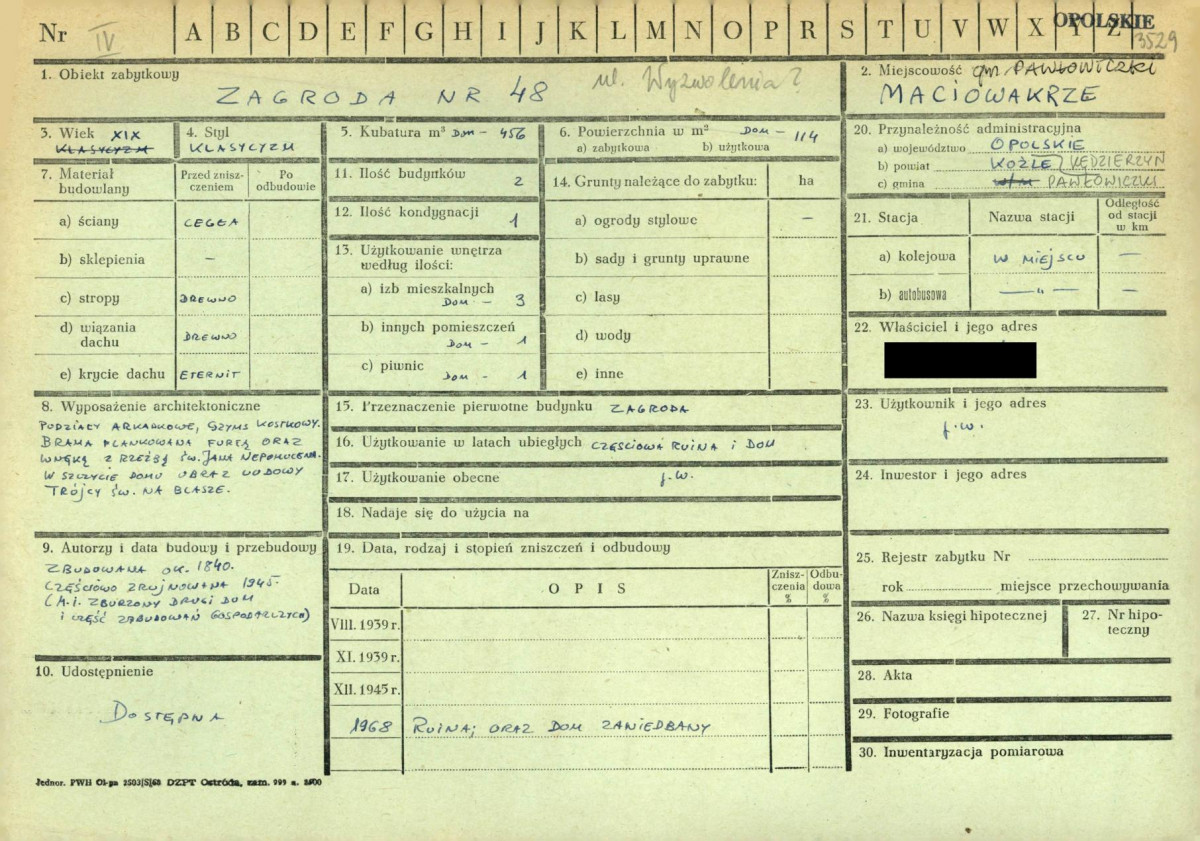 Nr IV A B C D E F G H I J K L M N O P R S T U V W X Y Z OPOLSKIE
3529
1. Obiekt zabytkowy
ZAGRODA NR 48 ul. Wyzwolenia?
2. Miejscowość gm. PAWŁOWICZKI
MACIOWAKRZE
3. Wiek XIX
KLASYCYZM
4. Styl
KLASYCYZM
5. Kubatura m³ DOM - 456
6. Powierzchnia w m² DOM - 114
a) zabytkowa b) użytkowa
20. Przynależność administracyjna
a) województwo OPOLSKIE
b) powiat KOŹLE / KĘDZIERZYN
c) gmina w/m PAWŁOWICZKI
7. Materiał budowlany
Przed zniszczeniem
Po odbudowie
a) ściany CEGŁA
b) sklepienia –
c) stropy DREWNO
d) wiązania dachu DREWNO
e) krycie dachu ETERNIT
11. Ilość budynków 2
12. Ilość kondygnacji 1
13. Użytkowanie wnętrza
według ilości:
a) izb mieszkalnych
DOM - 3
b) innych pomieszczeń
DOM - 1
c) piwnic
DOM - 1
14. Grunty należące do zabytku: ha
a) ogrody stylowe –
b) sady i grunty uprawne
c) lasy
d) wody
e) inne
21. Stacja Nazwa stacji Odległość od stacji w km
a) kolejowa W MIEJSCU –
b) autobusowa — " — –
22. Właściciel i jego adres
23. Użytkownik i jego adres
j.w.
24. Inwestor i jego adres
8. Wyposażenie architektoniczne
PODZIAŁY ARKADKOWE, GZYMS KOSTKOWY.
BRAMA FLANKOWANA FURTĄ ORAZ
WNĘKĄ Z RZEŹBĄ ŚW. JANA NEPOMUCENA.
W SZCZYCIE DOMU OBRAZ LUDOWY
TRÓJCY ŚW. NA BLASZE.
15. Przeznaczenie pierwotne budynku ZAGRODA
16. Użytkowanie w latach ubiegłych CZĘŚCIOWA RUINA I DOM
17. Użytkowanie obecne j.w.
18. Nadaje się do użycia na
9. Autorzy i data budowy i przebudowy
ZBUDOWANA OK. 1840.
CZĘŚCIOWO ZRUJNOWANA 1945.
(M.I. ZBURZONY DRUGI DOM
I CZĘŚĆ ZABUDOWAŃ GOSPODARCZYCH)
10. Udostępnienie
DOSTĘPNA
19. Data, rodzaj i stopień zniszczeń i odbudowy
Data OPIS Zniszczenia % Odbudowa %
VIII. 1939 r.
XI. 1939 r.
XII. 1945 r.
1968 RUINA; ORAZ DOM ZANIEDBANY
25. Rejestr zabytku Nr
rok miejsce przechowywania
26. Nazwa księgi hipotecznej
27. Nr hipoteczny
28. Akta
29. Fotografie
30. Inwentaryzacja pomiarowa
Jednor. PWH Ol-pa 2503/S/68 DZPT Ostróda, zam. 999 n. 3500